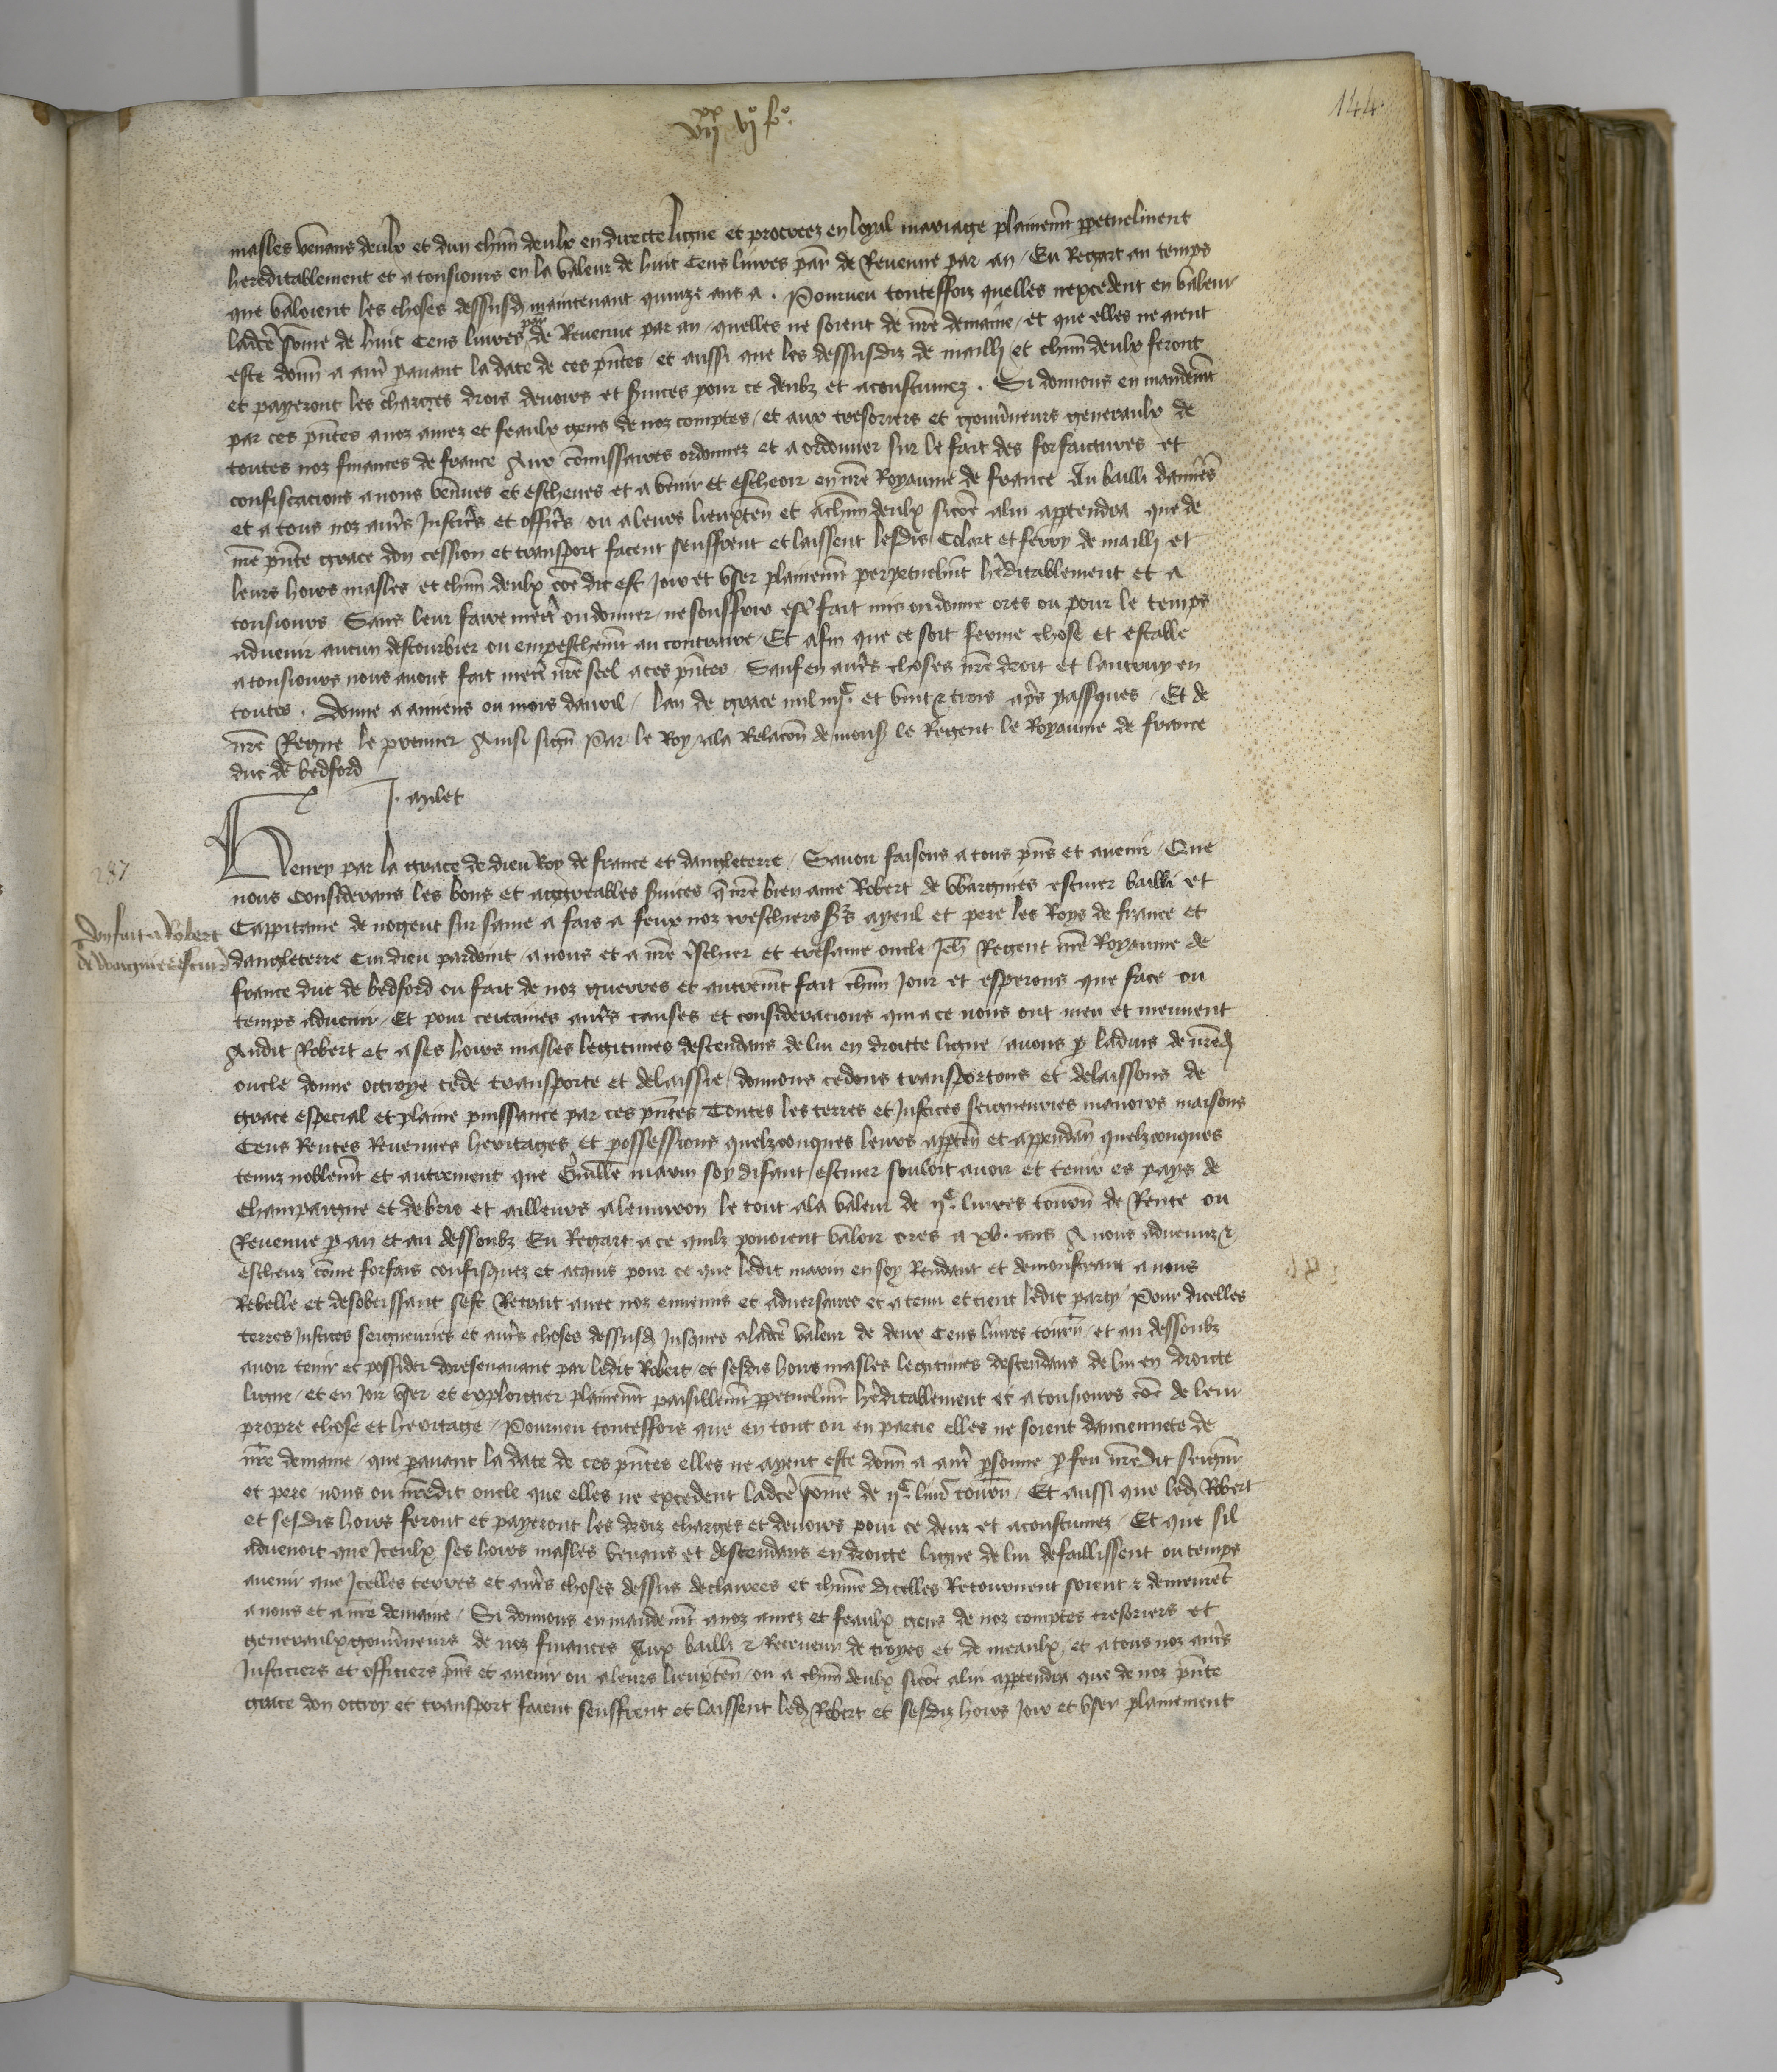 xx
vii vjo fo.
144.
masles venans deulx et dun chūn deulx en directe ligne et procreez en loyal mariage plainemt ppetuelment
hereditablement et a tousiours en la valeur de huit Cens livres par de Revenue par an / Eu Regart au temps
que valoient les choses dessusd maintenant quinze ans a . Pourveu touteffoiz quelles nexcedent en valeur
ladce some de huit Cens livres par de Revenue par an / quelles ne soient de nre demaine / et que elles ne aient
este donn a autr pavant la date de ces pntes / et aussi que les dessusdiz de mailli / et chūn deulx feront
et payeront les charges drois devoirs et svices pour ce deubz et acoustumez . Si donnons en mandemt
par ces pntes a noz amez et feaulx gens de noz comptes / et aux tresoriers et gouvneurs generaulx de
toutes noz finances de france Aux comissaires ordonnez et a ordonner sur le fait des forfaictures et
confiscacions a nous venues et escheues et a venir et escheoir en nre Royaume de france Au bailli damiens
et a tous noz autrs Justicrs et officrs ou a leurs lieuxten et achūn deulx sicoe a lui apptendra que de
nre pnte grace don cession et transport facent seuffrent et laissent lesdis Colart et ferry de mailli et
leurs hoirs masles et chūn deulx coe dit est Joir et vser plainemt perpetuelmt hditablement et a
tousiours Sans leur faire mectr ou donner / ne souffrir estr fait mis ou donne ores ou pour le temps
advenir aucun destourbier ou empeschemt au contraire / Et afin que ce soit ferme chose et estable
a tousiours nous avons fait mectr nre seel a ces pntes Sauf en autrs choses nre droit et lautruy en
toutes . Donne a amiens ou mois davril / lan de grace mil iiijc. et vint z trois aps pasques / Et de
nre Regne le premier Ainsi sign Par le Roy / ala Relacon de mons le Regent le Royaume de france
duc de bedford
J. aylet
287
Henry par la grace de dieu Roy de france et dangleterre / Savoir faisons a tous pns et avenir / Que
nous Considerans les bons et aggreables svices q nre bien ame Robert de Wargnies escuier bailli et
Don fait a Robert
de Wargnies escuir
Cappitaine de nogent sur saine a fais a feux noz treschiers srs ayeul et pere les Roys de france et
dangleterre Cui dieu pardoint / a nous et a nre tschier et tresame oncle Jeh Regent nre Royaume de
france duc de bedford ou fait de noz guerres et autremt fait chūn Jour et esperons que face ou
temps advenir / Et pour certaines autrs causes et consideracions qui a ce nous ont meu et meuvent
Audit Robert et a ses hoirs masles legitimes descendans de lui en droitte ligne / avons p ladvis de nred
oncle donne octroye cede transporte et delaissie / donnons cedons transportons et delaissons de
grace especial et plaine puissance par ces pntes Toutes les terres et Justices seigneuries manoirs maisons
Cens Rentes Revenues heritages et possessions quelzconques leurs appten et appendan quelzconques
tenuz noblemt et autrement que Guille marin soy disant escuier souloit avoir et tenir es pays de
Champaigne et de brie et ailleurs a lenviron le tout ala valeur de ijc. livres tourn de Rente ou
Revenue p an et au dessoubz Eu Regart a ce quilz povoient valoir ores a xv. ans A nous advenuz z
escheuz come forfais confisquez et acquis pour ce que ledit marin en soy Rendant et demonstrant a nous
Rebelle et desobeissant sest Retrait avec noz ennemis et adversaires et a tenu et tient ledit party Pour dicelles
terres Justices seigneuries et autrs choses dessusd Jusques a ladce valeur de deux Cens livres tourn / et au dessoubz
avoir tenir et possider doresenavant par ledit Robert / et sesdis hoirs masles legitimes descendans de lui en droicte
ligne / et en Joir vser et exploictier plainemt paisiblemt ppetuelmt hditablement et a tousiours coe de leur
propre chose et heritage / Pourveu touteffois que en tout ou en partie elles ne soient danciennete de
nre demaine / que pavant la date de ces pntes elles ne ayent este donn a autr psonne p feu nredit seigneur
et pere nous ou nredit oncle que elles ne excedent ladce some de ijc. livr tourn / Et aussi que led Robert
et sesdis hoirs feront et payeront les droiz charges et devoirs pour ce deuz et acoustumez / Et que sil
advenoit que Iceulx ses hoirs masles venans et descendans en droicte ligne de lui defaillissent ou temps
avenir que Icelles terres et autrs choses dessus declairees et chūne dicelles Retournent soient z demeurct
a nous et a nre demaine / Si donnons en mandemt a noz amez et feaulx gens de noz comptes tresoriers et
generaulx gouvneurs de noz finances Aux bailliz z Receveurs de troyes et de meaulx / et a tous noz autrs
Justiciers et officiers pns et avenir ou a leurs lieuxten / ou a chūn deulx sicoe a lui apptendra que de noz pnte
grace don octroy et transport facent seuffrent et laissent led Robert et sesdiz hoirs Joir et vser plainement